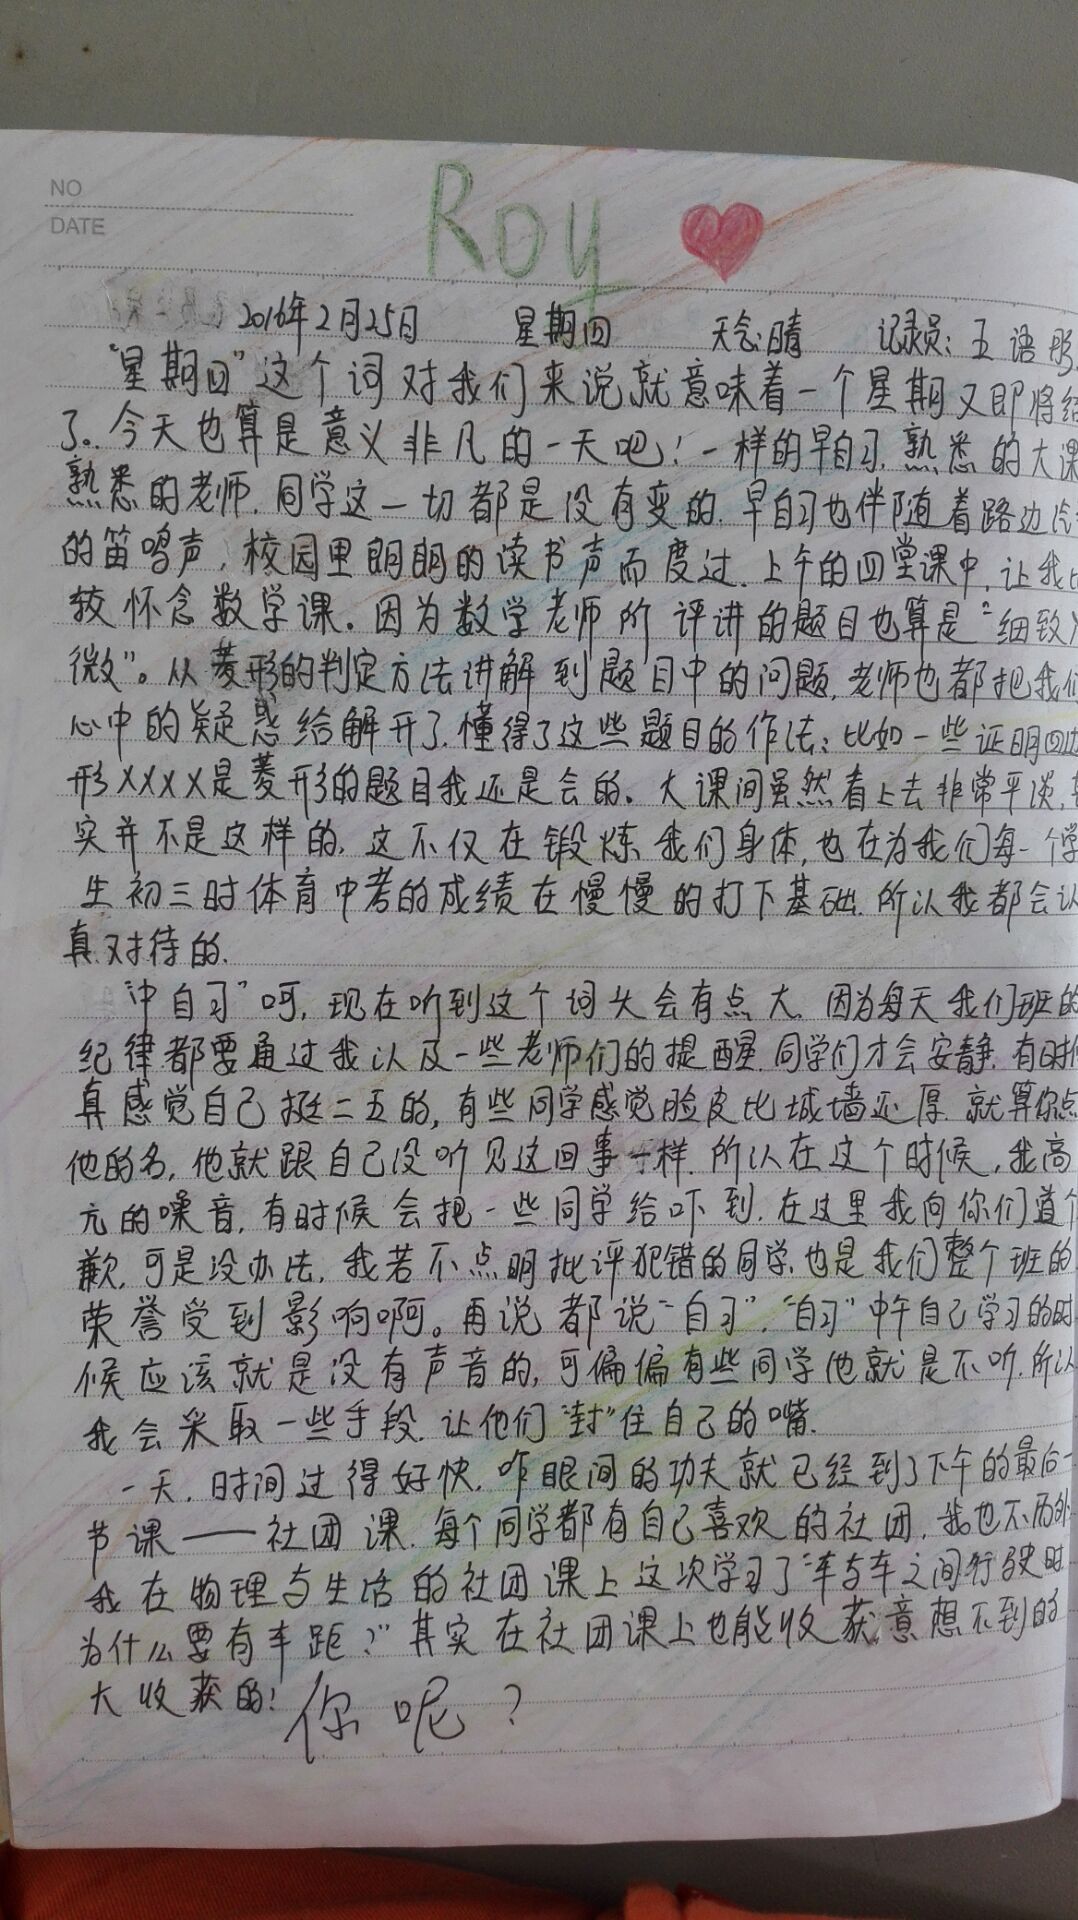 NO
DATE
Roy
2016年2月25日 星期四 天气:晴 记录员:王语彤
“星期四”这个词对我们来说就意味着一个星期又即将结
了。今天也算是意义非凡的一天吧!一样的早自习,熟悉的大课
熟悉的老师,同学这一切都是没有变的.早自习也伴随着路边汽
的笛鸣声,校园里朗朗的读书声而度过.上午的四堂课中,让我比
较怀念数学课。因为数学老师所评讲的题目也算是“细致入
微”。从菱形的判定方法讲解到题目中的问题,老师也都把我们
心中的疑惑给解开了.懂得了这些题目的作法;比如一些证明四边
形XXXX是菱形的题目我还是会的。大课间虽然看上去非常平淡,
实并不是这样的,这不仅在锻炼我们身体,也在为我们每一个学
生初三时体育中考的成绩在慢慢的打下基础.所以我都会认
真对待的.
“中自习”呵,现在听到这个词头会有点大.因为每天我们班的
纪律都要通过我以及一些老师们的提醒.同学们才会安静.有时候
真感觉自己挺二五的,有些同学感觉脸皮比城墙还厚.就算你点
他的名,他就跟自己没听见这回事一样.所以在这个时候,我高
亢的噪音,有时候会把一些同学给吓到.在这里我向你们道个
歉,可是没办法,我若不点明批评犯错的同学,也是我们整个班的
荣誉受到影响啊。再说都说“自习”,“自习”中午自己学习的时
候应该就是没有声音的,可偏偏有些同学他就是不听.所以
我会采取一些手段.让他们“封”住自己的嘴.
一天,时间过得好快.咋眼间的功夫就已经到了下午的最后一
节课——社团课.每个同学都有自己喜欢的社团,我也不例外
我在物理与生活的社团课上这次学习了“车与车之间行驶时
为什么要有车距?”其实在社团课上也能收获意想不到的
大收获的!
你呢?